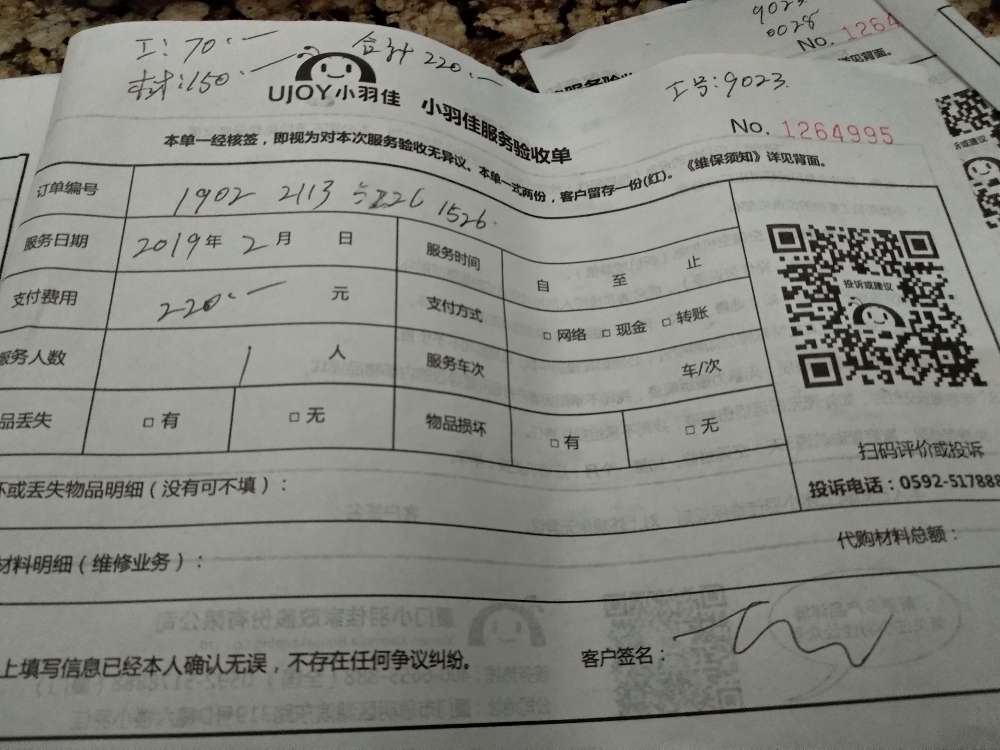 工：70.一
合计220.一
材：150.一
工号：9023.
9023
0028
No. 1264
UJOY小羽佳
小羽佳服务验收单
No. 1264995
本单一经核签，即视为对本次服务验收无异议。本单一式两份，客户留存一份(红)。《维保须知》详见背面。
订单编号 1902 2113 1526.
服务日期 2019年 2月 日
服务时间 自 至 止
支付费用 220.一 元
支付方式 □网络 □现金 □转账
服务人数 1 人
服务车次 车/次
品丢失 □有 □无
物品损坏 □有 □无
投诉或建议
扫码评价或投诉
投诉电话：0592-517888
坏或丢失物品明细（没有可不填）：
材料明细（维修业务）：
代购材料总额：
上填写信息已经本人确认无误，不存在任何争议纠纷。
客户签名：